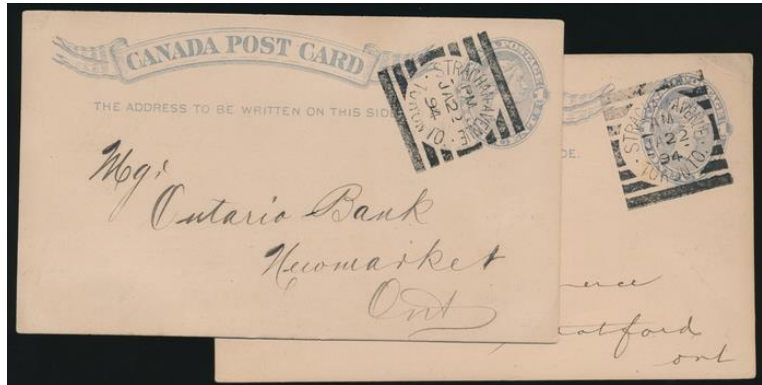 CANADA POST CARD
THE ADDRESS TO BE WRITTEN ON THIS SIDE
STRACHAN AVENUE
PM
JA 22
94
TORONTO
Mgr
Ontario Bank
Newmarket
Ont
STRACHAN AVENUE
PM
JA 22
94
TORONTO
DE.
ont